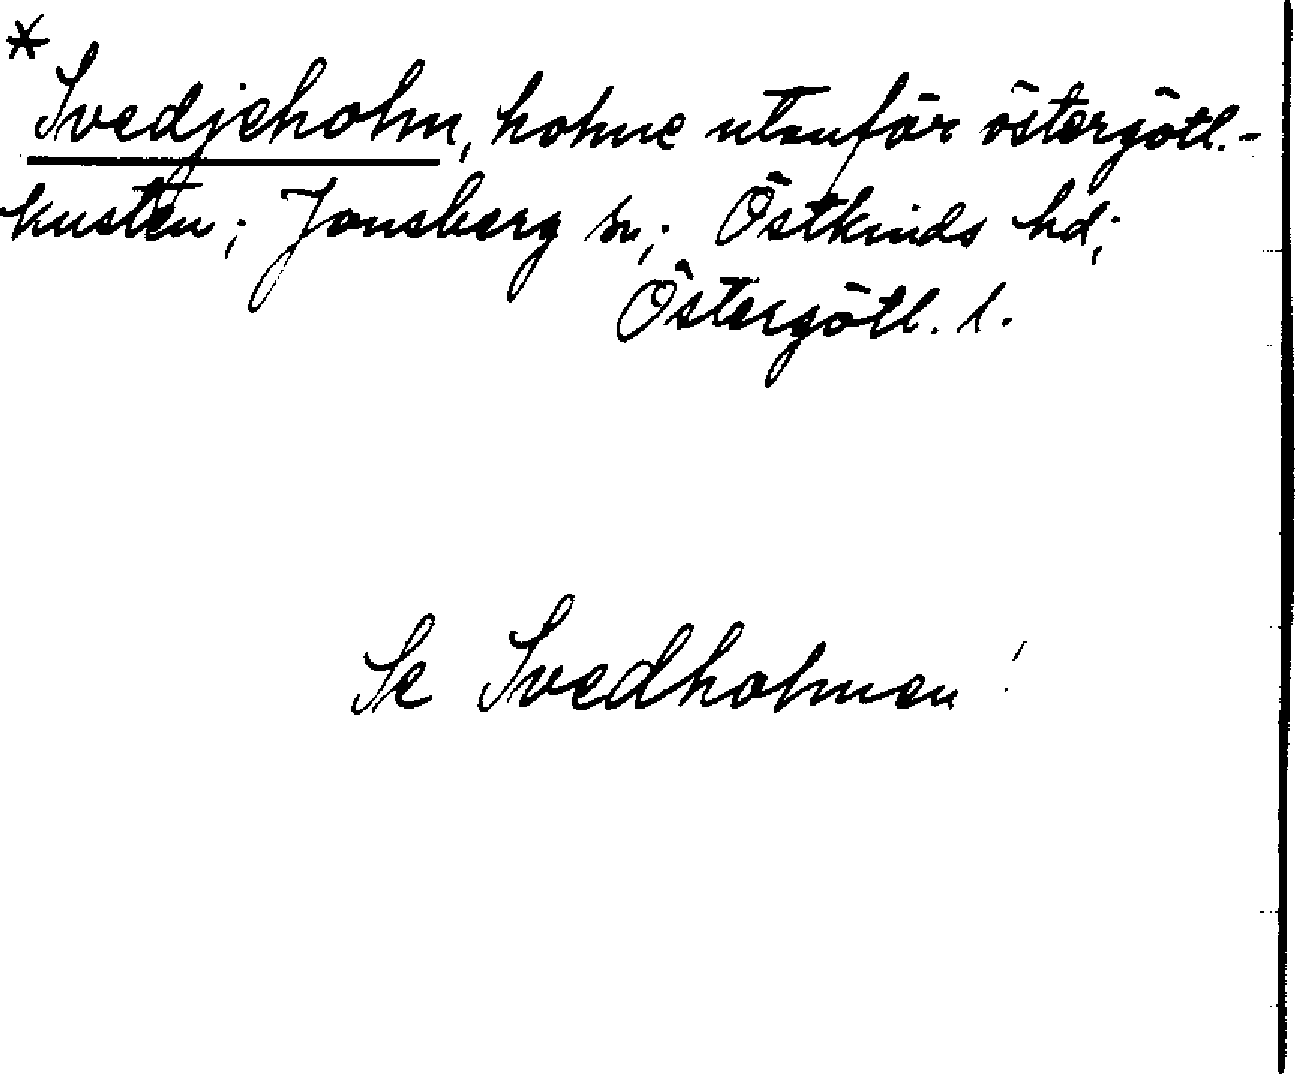 *
Svedjeholm, holme utanför östergötl.-
kusten; Jonsberg sn; Östkinds hd;
Östergötl. l.
Se Svedholmen!